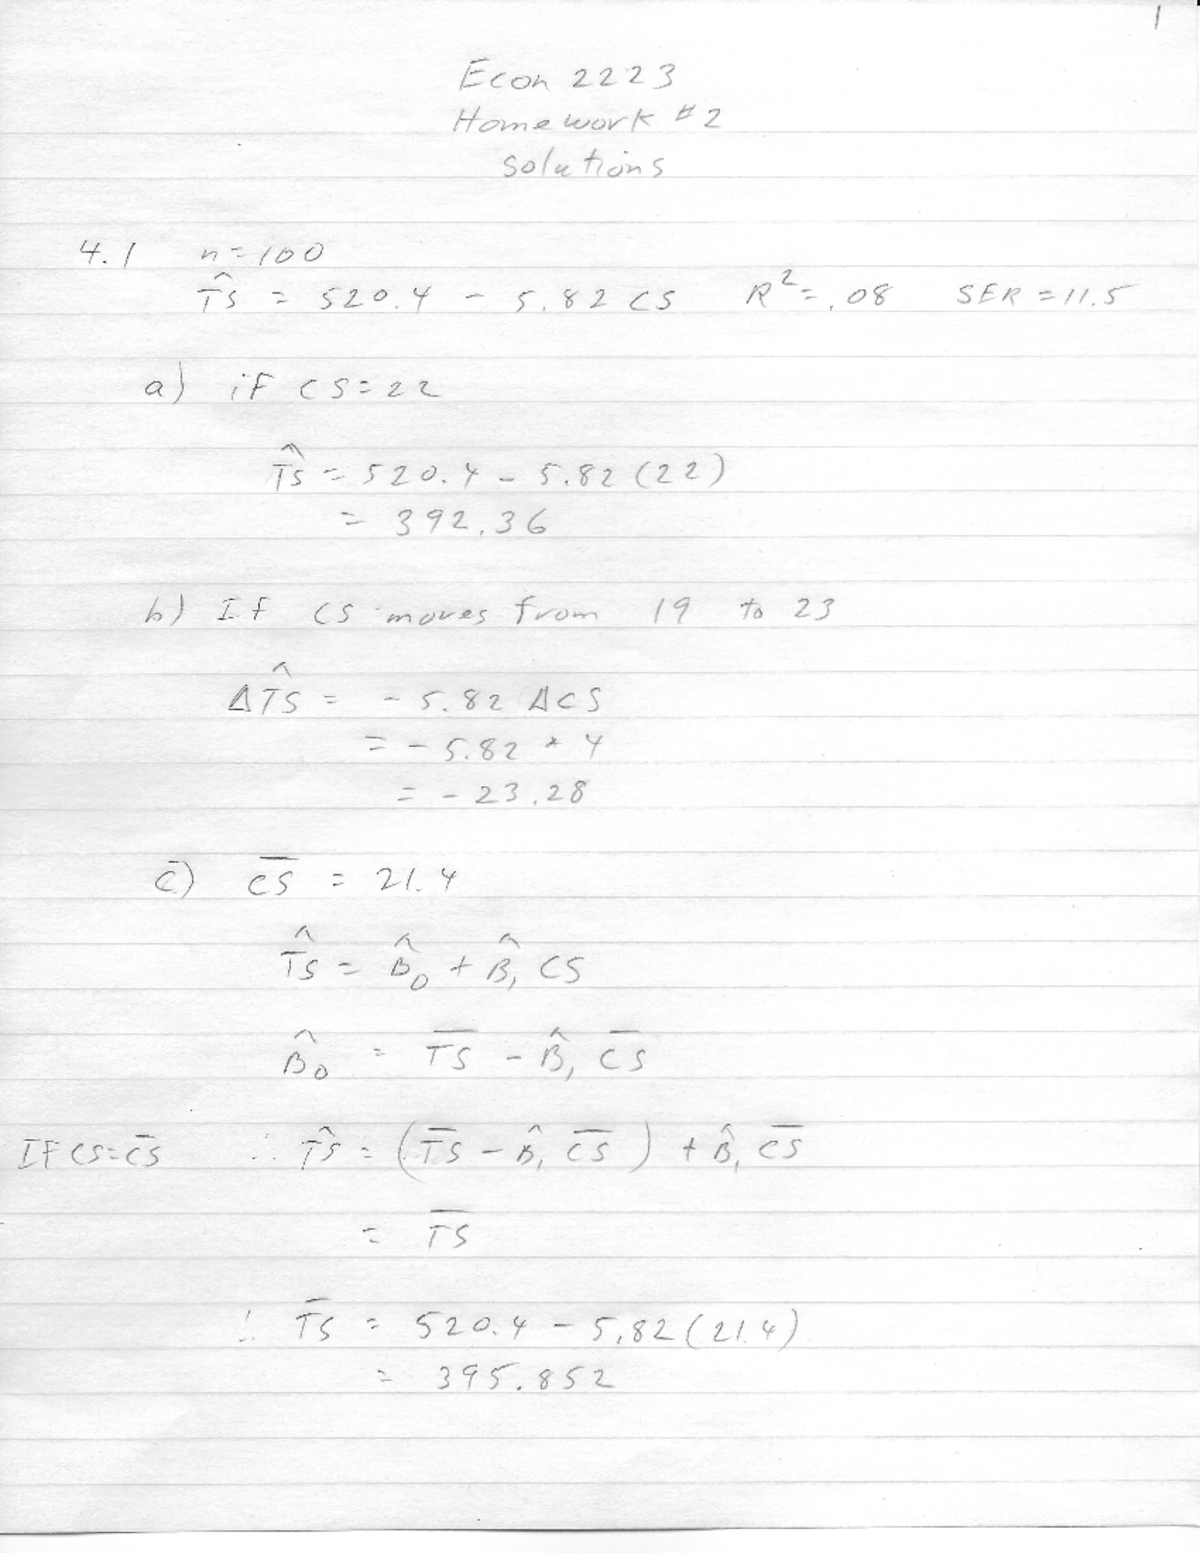 1
Econ 2223
Homework #2
solutions
4.1 n=100
T̂S = 520.4 - 5.82 CS R² = .08 SER = 11.5
a) if CS=22
T̂S = 520.4 - 5.82 (22)
= 392.36
b) If CS moves from 19 to 23
ΔT̂S = -5.82 ΔCS
= -5.82 * 4
= -23.28
c) C̅S̅ = 21.4
T̂S = B̂₀ + B̂₁ CS
B̂₀ = T̅S̅ - B̂₁ C̅S̅
If CS=C̅S̅ ∴ T̂S = (T̅S̅ - B̂₁ C̅S̅) + B̂₁ C̅S̅
= T̅S̅
∴ T̅S̅ = 520.4 - 5.82(21.4)
= 395.852